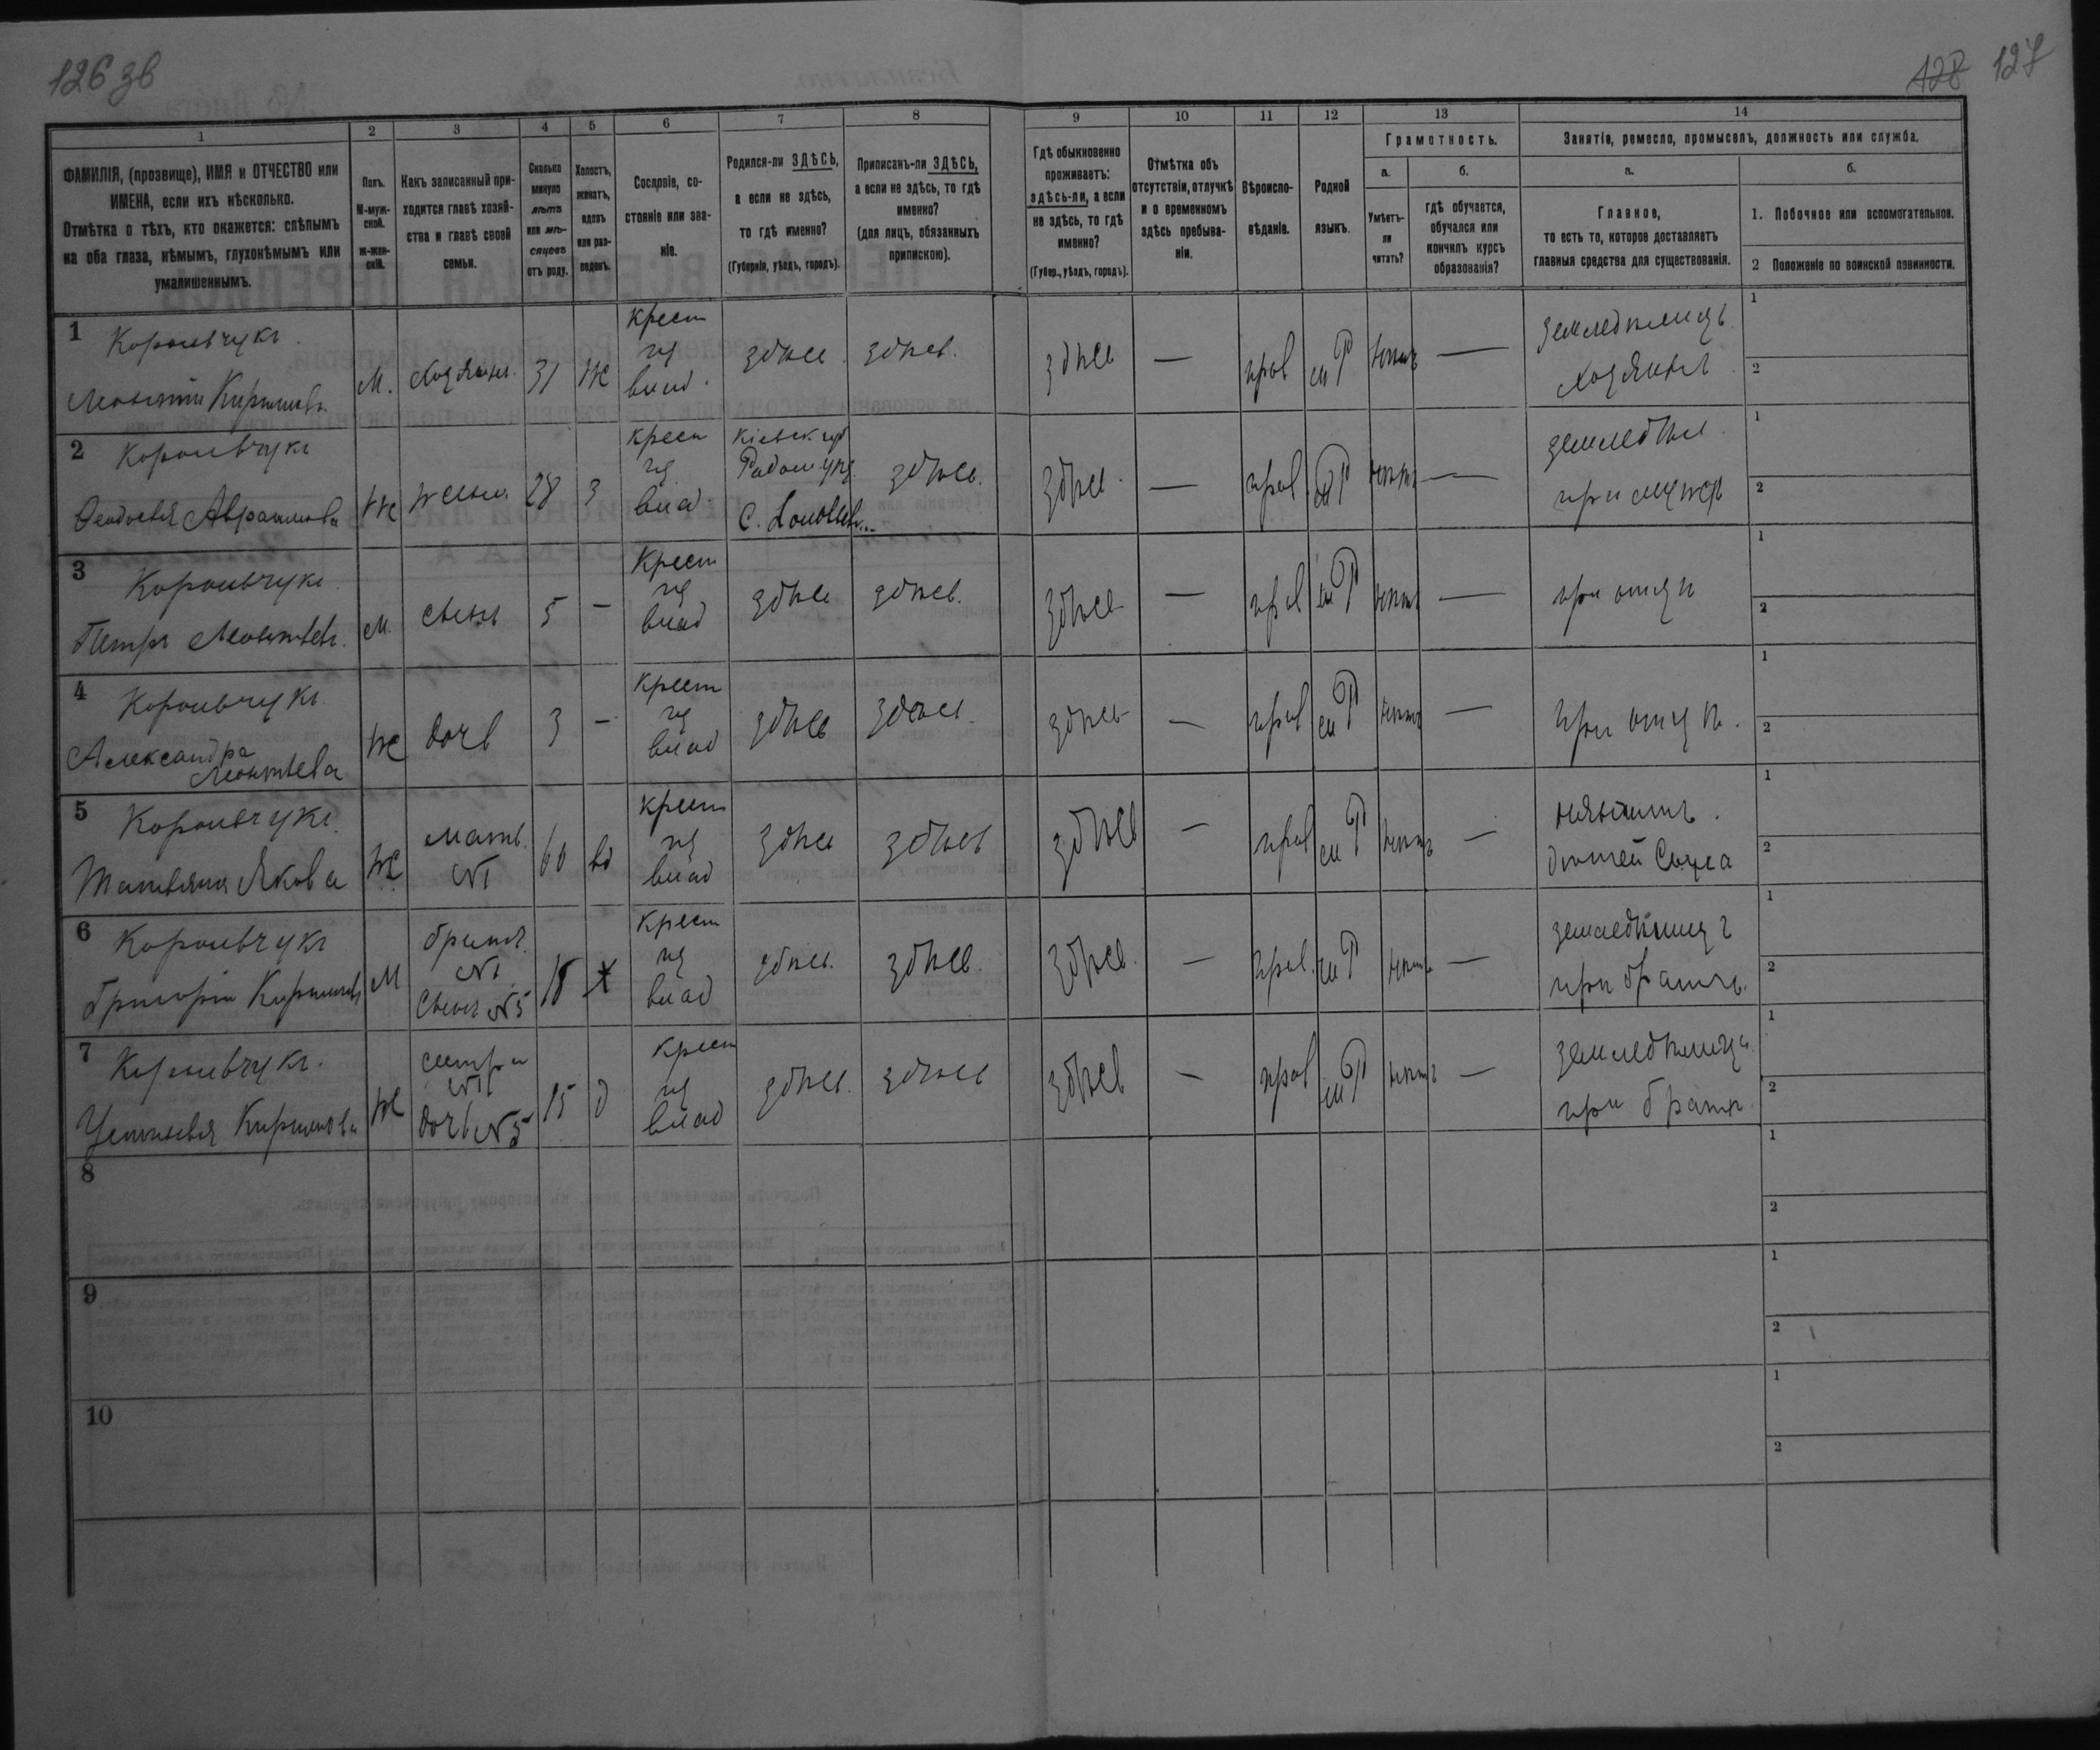 126 зв
128 127
1 2 3 4 5 6 7 8 9 10 11 12 13 14
ФАМИЛІЯ, (прозвище), ИМЯ и ОТЧЕСТВО или
ИМЕНА, если ихъ нѣсколько.
Отмѣтка о тѣхъ, кто окажется: слѣпымъ
на оба глаза, нѣмымъ, глухонѣмымъ или
умалишеннымъ.
Полъ.
М-муж-
ской.
Ж-жен-
скій.
Какъ записанный при-
ходится главѣ хозяй-
ства и главѣ своей
семьи.
Сколько
минуло
лѣтъ
или мѣ-
сяцевъ
отъ роду.
Холостъ,
женатъ,
вдовъ
или раз-
веденъ.
Сословіе, со-
стояніе или зва-
ніе.
Родился-ли ЗДѢСЬ,
а если не здѣсь,
то гдѣ именно?
(Губернія, уѣздъ, городъ).
Приписанъ-ли ЗДѢСЬ,
а если не здѣсь, то гдѣ
именно?
(для лицъ, обязанныхъ
припискою).
Гдѣ обыкновенно
проживаетъ:
здѣсь-ли, а если
не здѣсь, то гдѣ
именно?
(Губер., уѣздъ, городъ).
Отмѣтка объ
отсутствіи, отлучкѣ
и о временномъ
здѣсь пребыва-
ніи.
Вѣроиспо-
вѣданіе.
Родной
языкъ.
Грамотность.
а.
Умѣетъ-
ли
читать?
б.
гдѣ обучается,
обучался или
кончилъ курсъ
образованія?
Занятіе, ремесло, промыселъ, должность или служба.
а.
Главное,
то есть то, которое доставляетъ
главныя средства для существованія.
б.
1. Побочное или вспомогательное.
2 Положеніе по воинской повинности.
1 Корольчукъ
Леонтій Кириловъ
М. хозяинъ 31 ж
крест
из
влад.
здѣсь здѣсь. здѣсь — прав нѣтъ —
земледѣлецъ
хозяинъ
1
2
2 Корольчукъ
Феодосья Авраамова
ж жена 28 з
крест
из
влад
Кіевск. губ
Радом. уѣз.
с.
здѣсь. здѣсь — прав нѣтъ —
земледѣл.
при мужѣ
1
2
3 Корольчукъ
Петръ Леонтьевъ.
М. сынъ 5 —
крест
из
влад
здѣсь здѣсь. здѣсь — прав нѣтъ —
при отцѣ
1
2
4 Корольчукъ
Александра
Леонтьева
ж дочь 3 —
крест
из
влад
здѣсь здѣсь. здѣсь — прав нѣтъ —
при отцѣ.
1
2
5 Корольчукъ
Татьяна Якова
ж
мать
№1
60 вд
крест
из
влад
здѣсь здѣсь здѣсь — прав нѣтъ —
дѣтей сына
1
2
6 Корольчукъ
Григорій Кириловъ
М
братъ
№1
сынъ №5
18 х
крест
из
влад
здѣсь. здѣсь. здѣсь. — прав. нѣтъ —
земледѣлецъ
при братѣ.
1
2
7 Корольчукъ.
Устинья Кирилова
ж
сестра
№1
дочь №5
15 д
крест
из
влад
здѣсь. здѣсь здѣсь — прав нѣтъ —
земледѣлица
при братѣ.
1
2
8
1
2
9
1
2
10
1
2